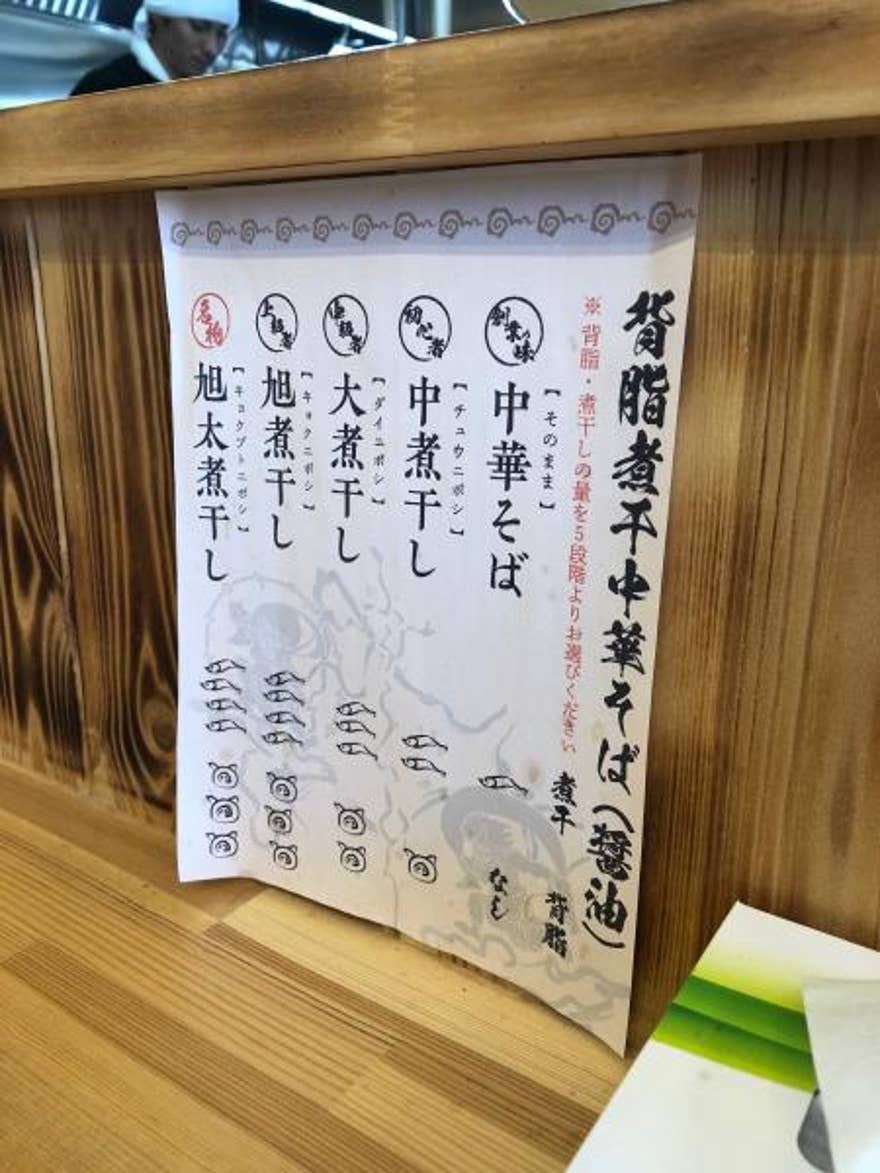 背脂煮干中華そば(醤油)
※背脂・煮干しの量を5段階よりお選びください
煮干
背脂
創業の味
【そのまま】
中華そば
なし
初心者
【チュウニボシ】
中煮干し
中級者
【ダイニボシ】
大煮干し
上級者
【キョクニボシ】
旭煮干し
名物
【キョクブトニボシ】
旭太煮干し